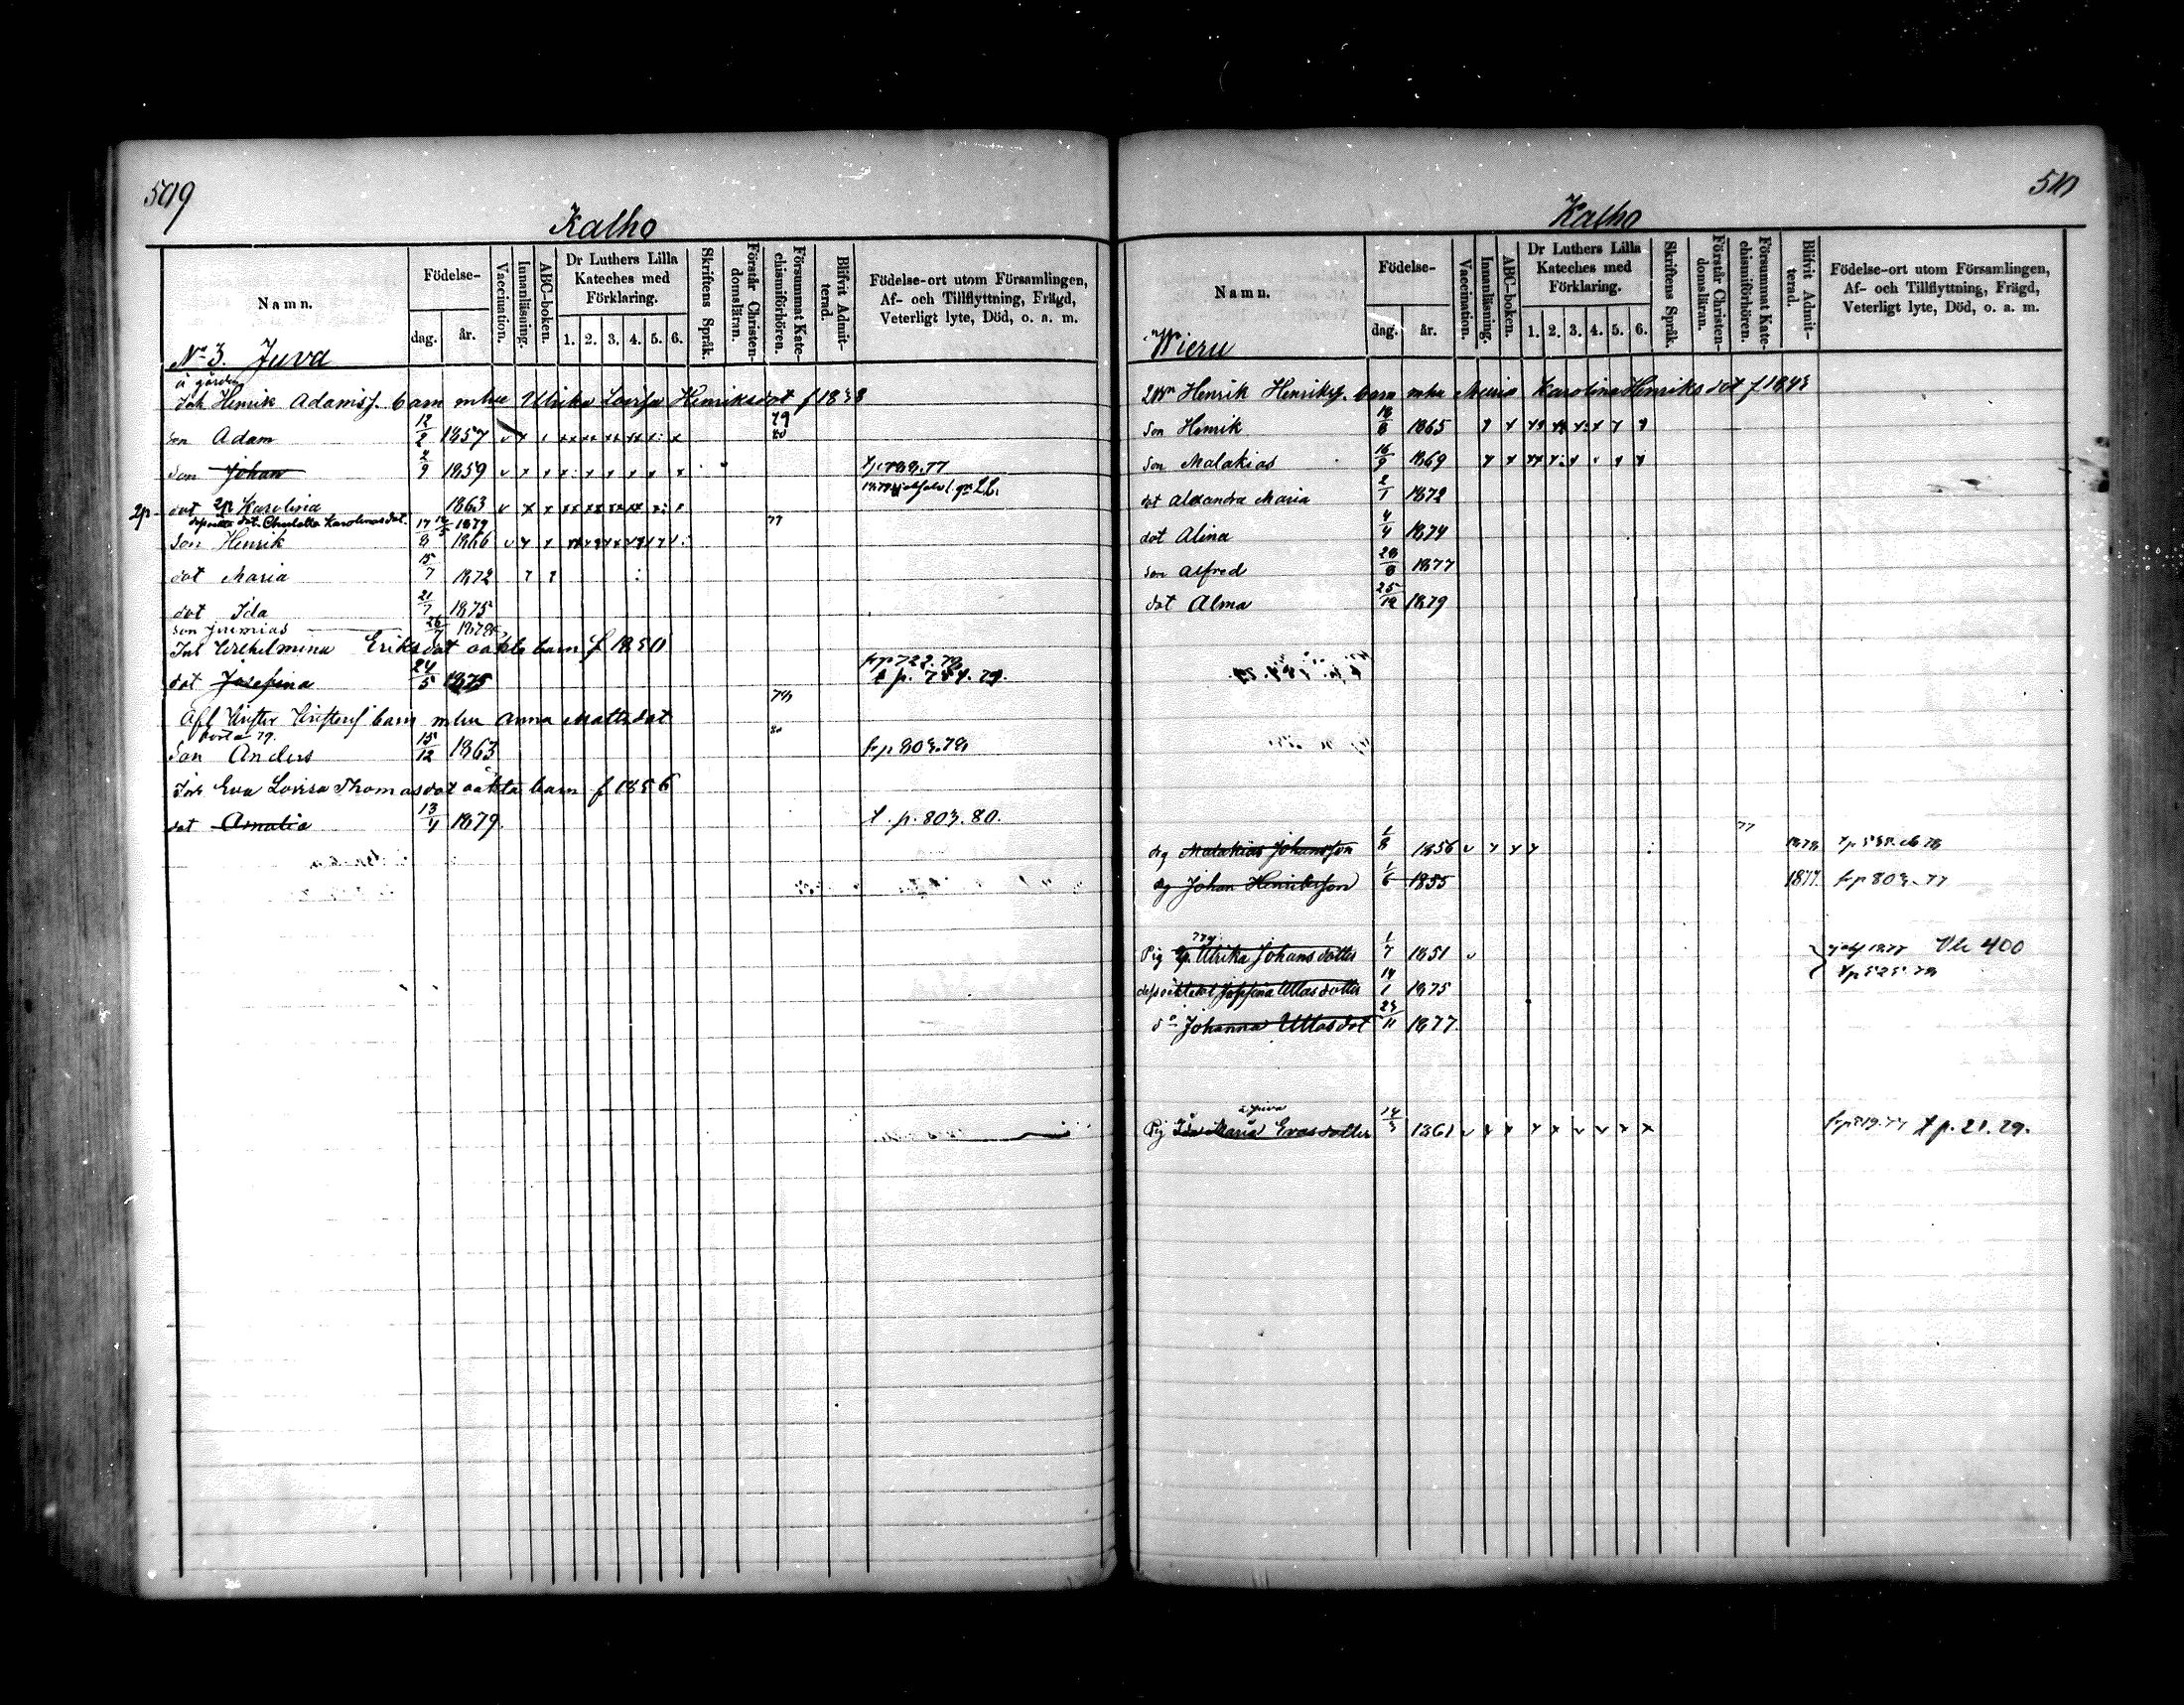 509
Kalho
Namn.
Födelse-
dag.
år.
Vaccination.
Innanläsning.
ABC-boken.
Dr Luthers Lilla Kateches med Förklaring.
1. 2. 3. 4. 5. 6.
Skriftens Språk.
Förstår Christendomsläran.
Försummat Katechismiförhören.
Blifvit Admitterad.
Födelse-ort utom Församlingen, Af- och Tillflyttning, Frägd, Veterligt lyte, Död, o. a. m.
No 3. Juva
å gården
Henrik Adamss. barn mhu Ulrika Lovisa Henriksdot f 1838
79
son Adam 12/2 1857 80
son Johan 2/9 1859
2p dot 2p Karolina 1863
oäkta dot. Charlotta Karolinasdot. 1879 77
son Henrik 17/8 1866
dot Maria 15/7 1872
dot Ida 21/7 1875
son Jeremias 26/7 1878
Inh Wilhelmina Eriksdot oäkta barn f 1850
dot Josefina 24/5 1875 t p. 784. 79.
78
Afl Krister Kristers barn mhu Anna Mattsdot
borta 79. 80
son Anders 15/12 1863 frp 803. 78
Inh Eva Lovisa Thomasdot oäkta barn f 1856
dot Amalia 13/4 1879. t. p. 803. 80.
510
Kalho
Namn.
Födelse-
dag.
år.
Vaccination.
Innanläsning.
ABC-boken.
Dr Luthers Lilla Kateches med Förklaring.
1. 2. 3. 4. 5. 6.
Skriftens Språk.
Förstår Christendomsläran.
Försummat Katechismiförhören.
Blifvit Admitterad.
Födelse-ort utom Församlingen, Af- och Tillflyttning, Frägd, Veterligt lyte, Död, o. a. m.
Wieru
Henrik Henrikss. barn mhu Maria Karolina Henriksdot f 1843
son Henrik 18/8 1865
son Malakias 16/9 1869
dot Alexandra Maria 2/1 1872
dot Alina 4/4 1874
son Alfred 28/8 1877
dot Alma 25/12 1879
77
drg Malakias Johansson 1/8 1856 1878
dg Johan Henriksson 1/6 1855 1877. frp 803. 77
Pig 2p. Ulrika Johansdotter 1/7 1851 1877 Vle 400
Josefina Ullasdotter 14/1 1875
do Johanna Ullasdot 23/11 1877.
å Juva
Pig Ida Maria Evasdotter 14/3 1861 frp 819. 77 t p. 21. 79.